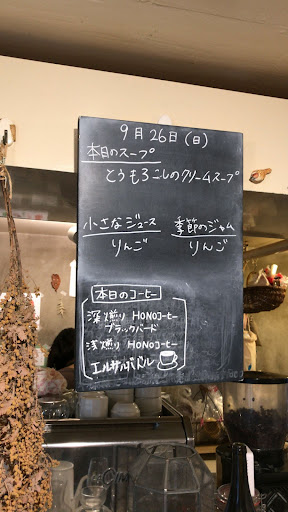 9月26日(日)
本日のスープ
とうもろこしのクリームスープ
小さなジュース
りんご
季節のジャム
りんご
本日のコーヒー
深煎り HONOコーヒー
ブラックバード
浅煎り HONOコーヒー
エルサルバドル